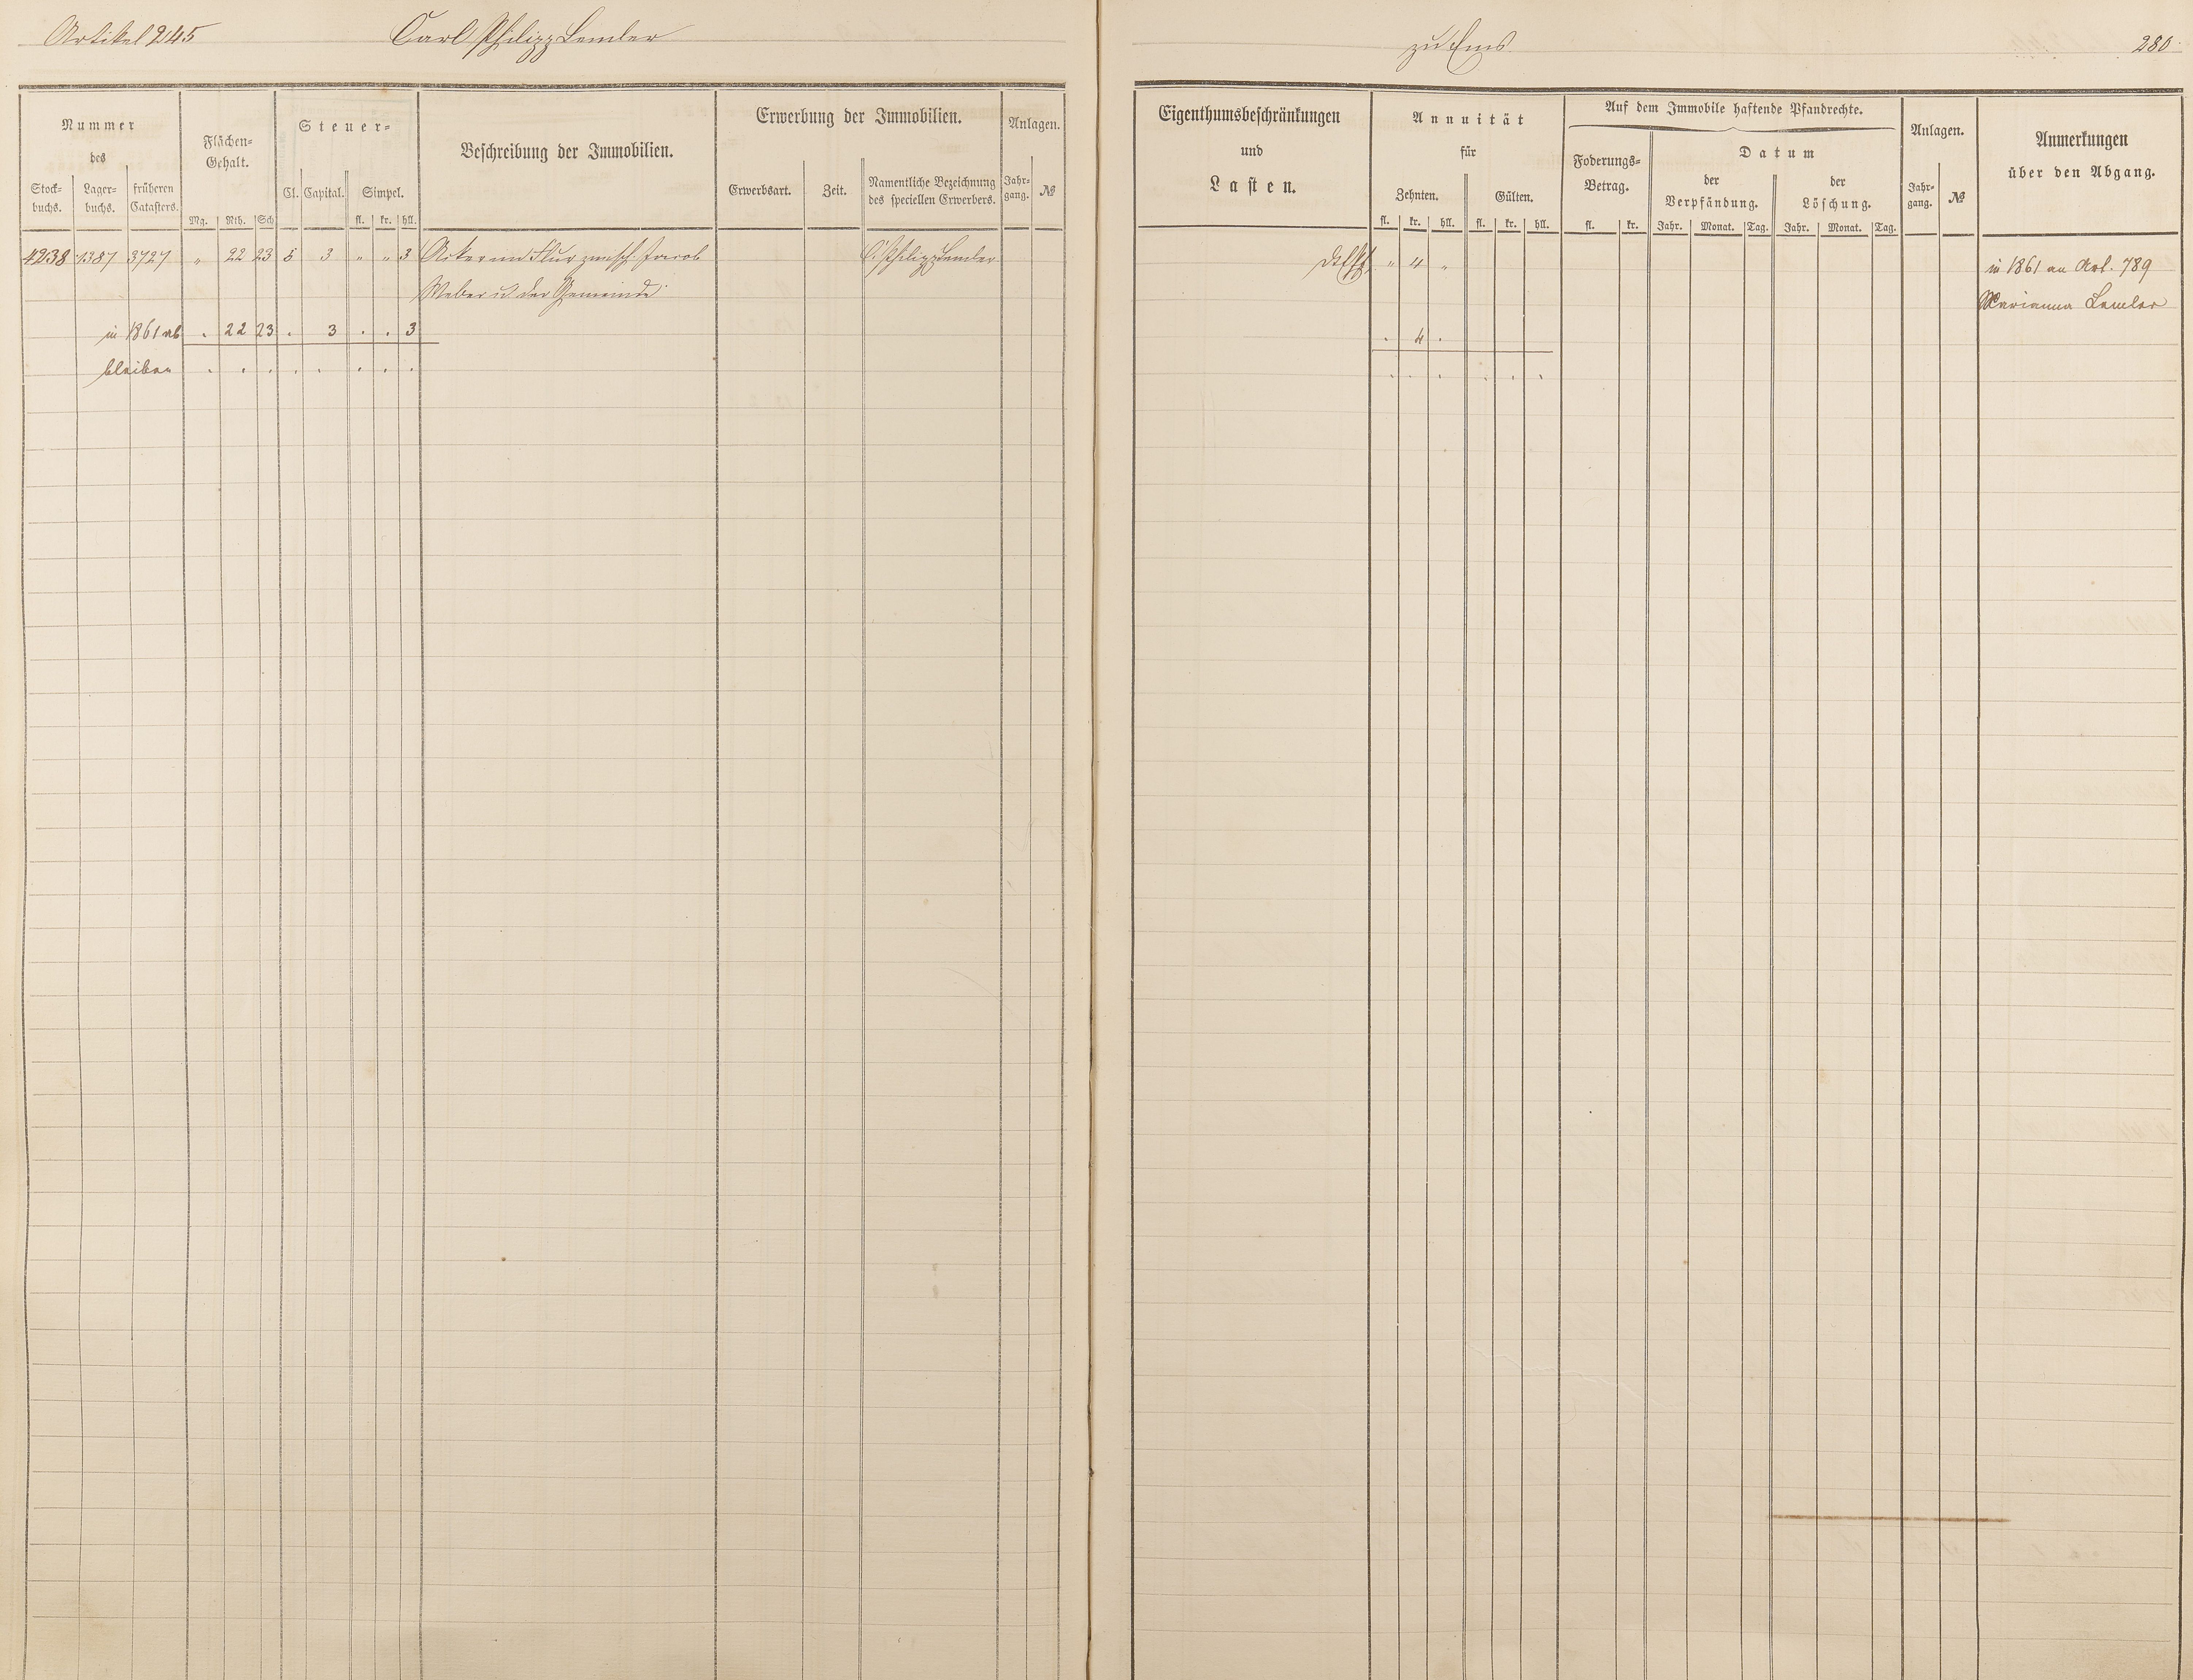 Artikel 245 Carl Philipp Lemler zu Ems 280
Nummer des
Stock-buchs. Lager-buchs. früheren Catasters.
Flächen-Gehalt.
Mg. Rth. Sch
Steuer-
Cl. Capital. Simpel.
fl. kr. hll.
Beschreibung der Immobilien.
Erwerbung der Immobilien.
Erwerbsart. Zeit. Namentliche Bezeichnung des speciellen Erwerbers.
Anlagen.
Jahr-gang. №
Eigenthumsbeschränkungen
und
Lasten.
Annuität
für
Zehnten. Gülten.
fl. kr. hll. fl. kr. hll.
Auf dem Immobile haftende Pfandrechte.
Foderungs-Betrag.
fl. kr.
Datum
der Verpfändung. der Löschung.
Jahr. Monat. Tag. Jahr. Monat. Tag.
Anlagen.
Jahr-gang. №
Anmerkungen
über den Abgang.
4238 1387 3727 „ 22 23 5 3 „ „ 3 Acker im Flur zwisch. Jacob C. Philipp Lemler „ 4 „ in 1861 an Art. 789
Weber u. der Gemeinde Marianna Lemler
in 1861 ab . 22 23 . 3 . . 3 . 4 .
bleiben . . . . . . . . . . . . . .